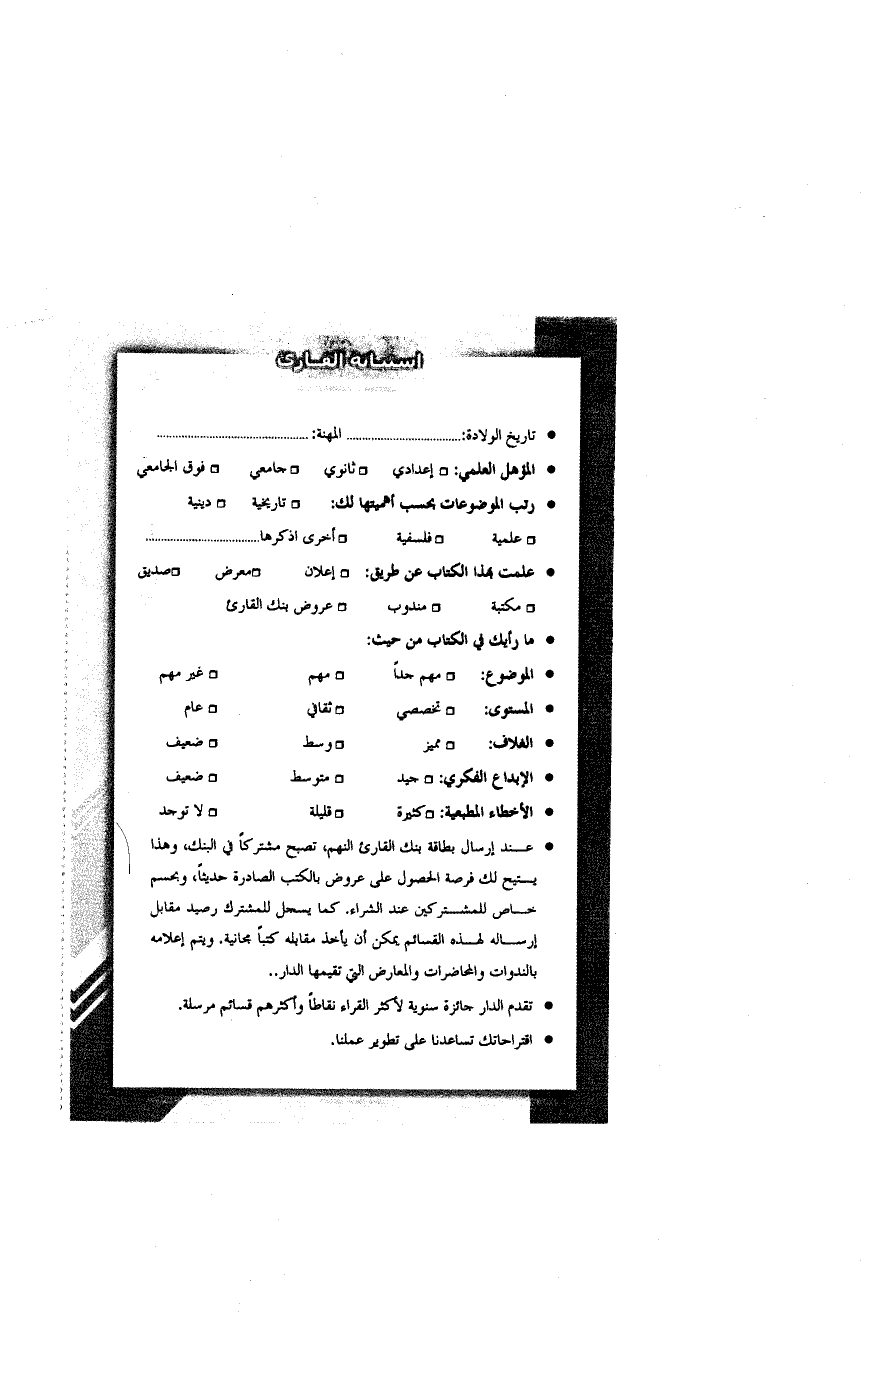 استبانة القارئ
● تاريخ الولادة:...................................... المهنة: ..................................................
● المؤهل العلمي: □ إعدادي □ ثانوي □ جامعي □ فوق الجامعي
● رتب الموضوعات بحسب أهميتها لك: □ تاريخية □ دينية
□ علمية □ فلسفية □ أخرى اذكرها......................................
● علمت بهذا الكتاب عن طريق: □ إعلان □ معرض □ صديق
□ مكتبة □ مندوب □ عروض بنك القارئ
● ما رأيك في الكتاب من حيث:
● الموضوع: □ مهم جداً □ مهم □ غير مهم
● المستوى: □ تخصصي □ ثقافي □ عام
● الغلاف: □ مميز □ وسط □ ضعيف
● الإبداع الفكري: □ جيد □ متوسط □ ضعيف
● الأخطاء المطبعية: □ كثيرة □ قليلة □ لا توجد
● عـــند إرسال بطاقة بنك القارئ النهم، تصبح مشتركاً في البنك، وهذا
يـــتيح لك فرصة الحصول على عروض بالكتب الصادرة حديثاً، وبحسم
خـــاص للمشـــتركين عند الشراء. كما يسجل للمشترك رصيد مقابل
إرســـاله لهـــذه القسائم يمكن أن يأخذ مقابله كتباً مجانية. ويتم إعلامه
بالندوات والمحاضرات والمعارض التي تقيمها الدار..
● تقدم الدار جائزة سنوية لأكثر القراء نقاطاً وأكثرهم قسائم مرسلة.
● اقتراحاتك تساعدنا على تطوير عملنا.